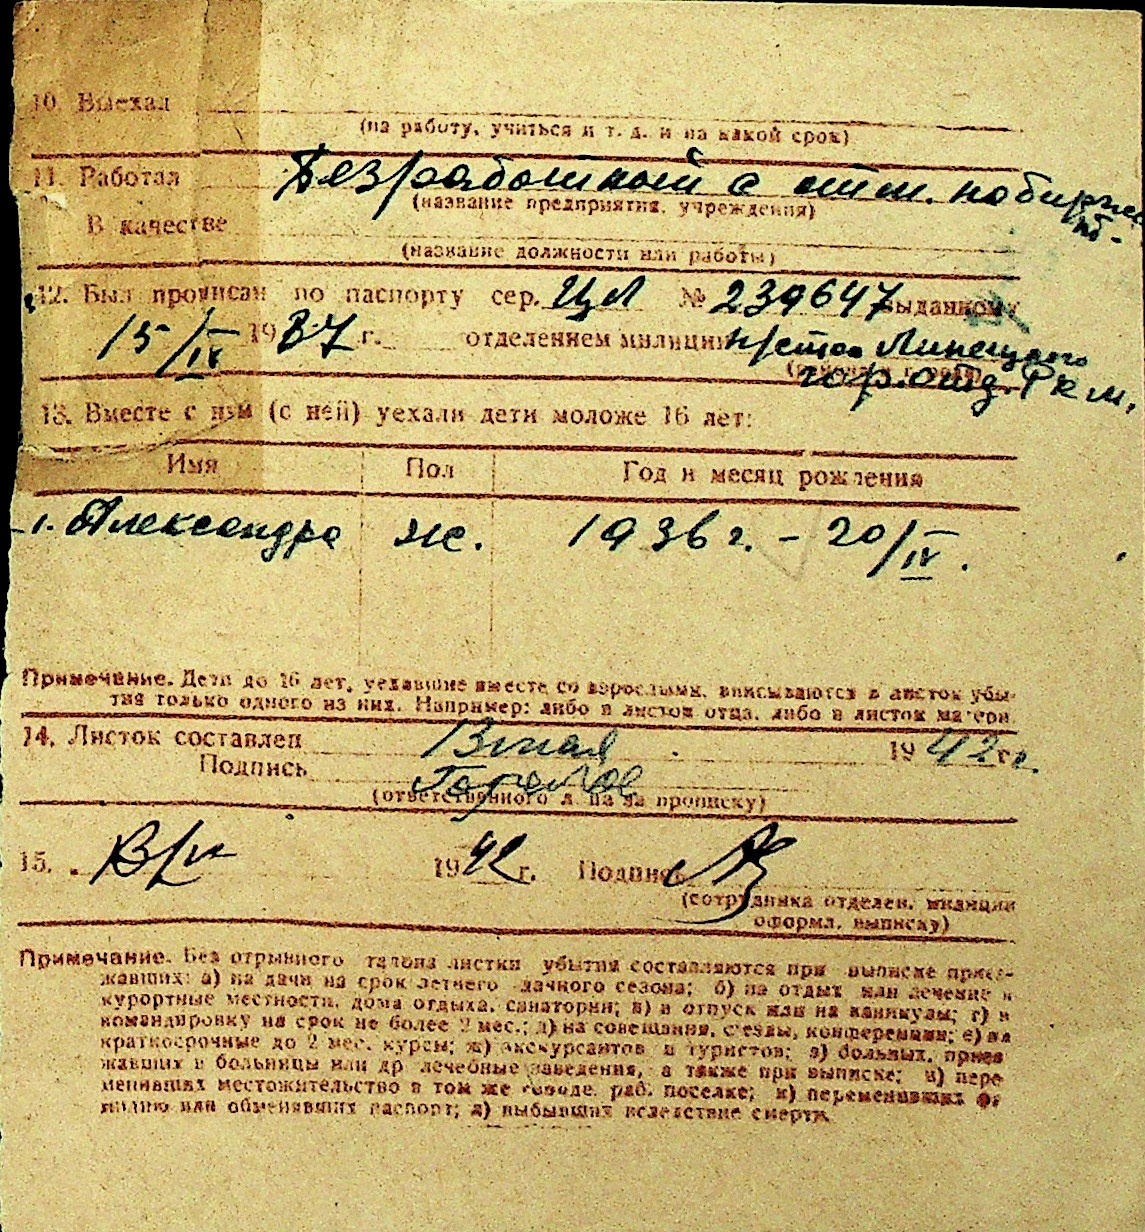 10. Выехал
(на работу, учиться и т. д. и на какой срок)
11. Работал Безработный с отм. на бирже
(название предприятия, учреждения)
В качестве
(название должности или работы)
12. Был прописан по паспорту сер. ЦЛ № 239647 выданному
15/IV 1937 г. отделением милиции Липецкого
гор. отд. РКМ.
13. Вместе с ним (с ней) уехали дети моложе 16 лет:
Имя Пол Год и месяц рождения
1. Александра жс. 1936 г. – 20/IV.
Примечание. Дети до 16 лет, уехавшие вместе со взрослыми, вписываются в листок убы-
тия только одного из них. Например: либо в листок отца, либо в листок матери.
14. Листок составлен 8 мая 1942 г.
Подпись
(ответственного л на за прописку)
15. 1942 г. Подпись
(сотрудника отделен. милиции
оформл. выписку)
Примечание. Без отрывного талона листки убытия составляются при выписке приез-
жавших: а) на дачи на срок летнего дачного сезона; б) на отдых или лечение в
курортные местности, дома отдыха, санатории; в) в отпуск или на каникулы; г) в
командировку на срок не более 2 мес.; д) на совещания, съезды, конференции; е) на
краткосрочные до 2 мес. курсы; ж) экскурсантов и туристов; з) больных, приез
жавших в больницы или др лечебные заведения, а также при выписке; и) пере
менивших местожительство в том же городе, раб. поселке; к) переменивших фа
милию или обменявших паспорт; л) выбывших вследствие смерти.